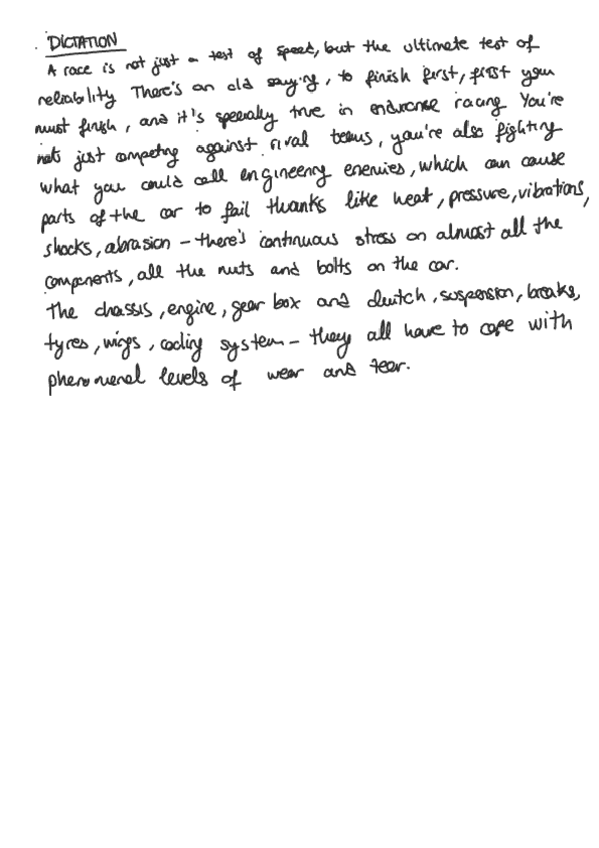 DICTATION
A race is not just a test of speed, but the ultimate test of
reliability There's an old saying, to finish first, first you
must finish, and it's specially true in endurance racing You're
not just competing against rival teams, you're also fighting
what you could call engineering enemies, which can cause
parts of the car to fail thanks like heat, pressure, vibrations,
shocks, abrasion – there's continuous stress on almost all the
components, all the nuts and bolts on the car.
The chassis, engine, gear box and clutch, suspension, breaks,
tyres, wings, cooling system – they all have to cope with
phenomenal levels of wear and tear.